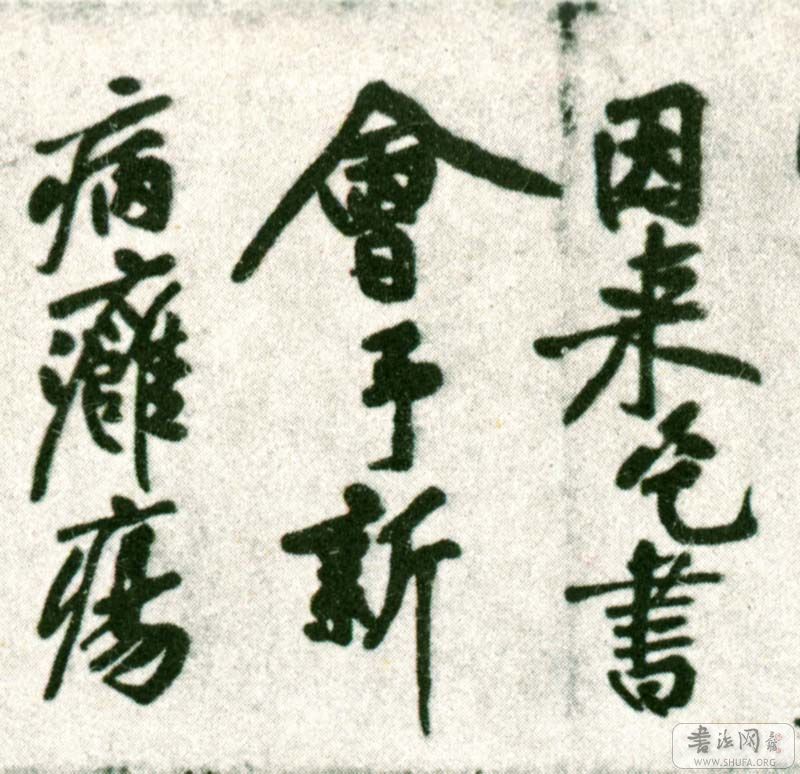 因来乞書
會予新
病癰瘍
書法网
WWW.SHUFA.ORG